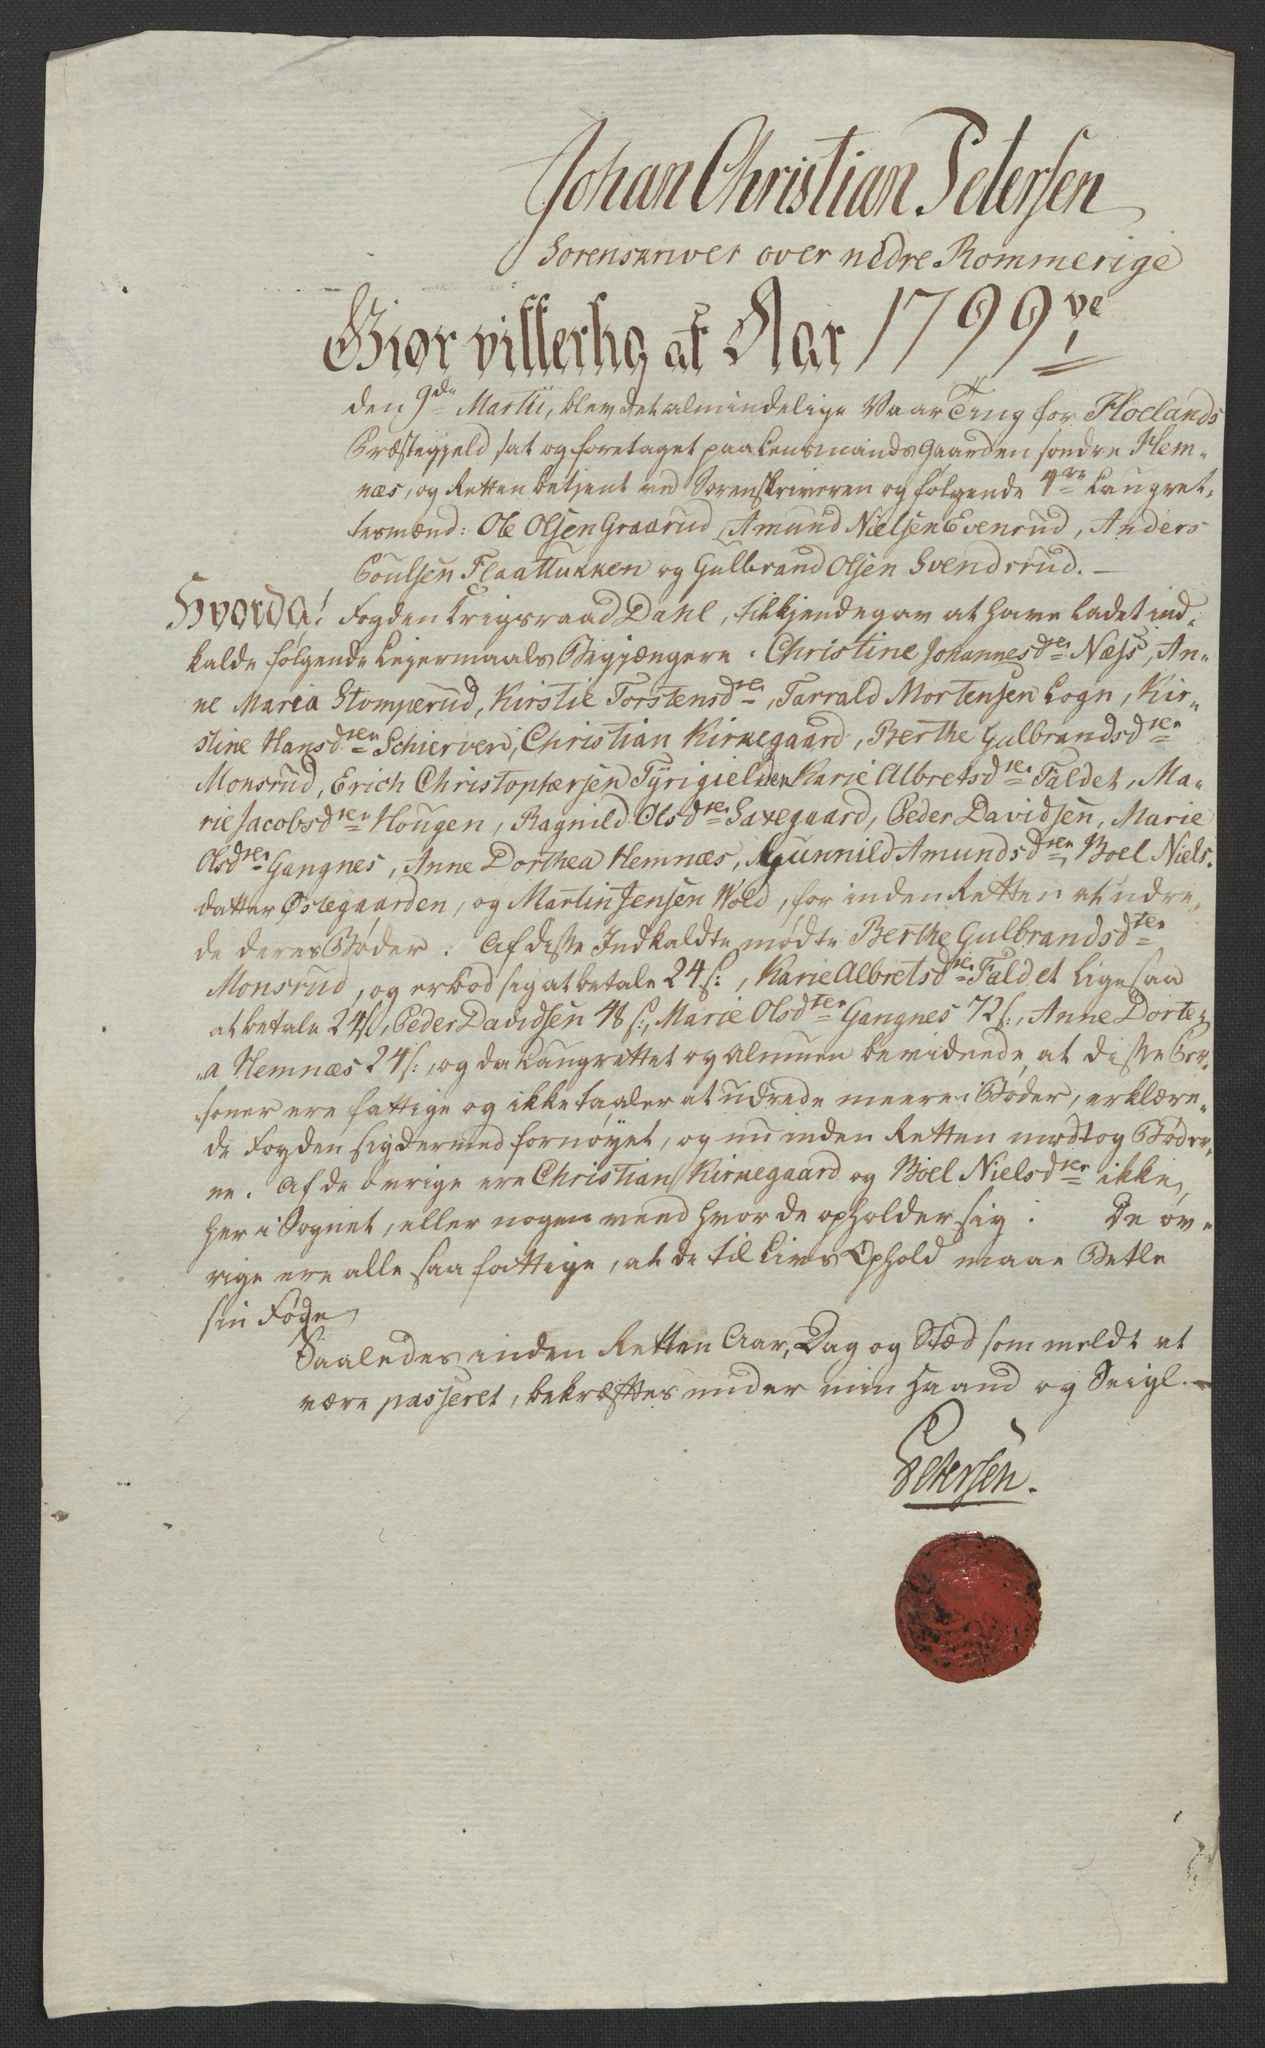 Johan Christian Petersen
Sorenskriver over nedre Rommerige
Giør vitterlig at Aar 1799ve
den 9de Martii, blev det almindelige Vaar Ting for Høelands
Præstegjeld sat og foretaget paa Lensmands Gaarden søndre Hem-
næs, og Retten betjent ved Sorenskriveren og følgende 4re Laugret-
tesmænd: Ole Olsen Graarud, Amund Nielsen Evenrud, Anders
Poulsen Flaattukken og Gulbrand Olsen Svendsrud. —
Hvorda! Fogden Krigsraad Dahl, tilkjendegav at have ladet ind-
kalde følgende Lejermaals Begjængere. Christine Johannesdter Næss, An-
ne Maria Stomperud, Kirstie Torstensdter, Tarrald Mortensen Logn, Kir-
stine Hansdter Schierven, Christian Kirkegaard, Berthe Gulbrandsdter
Monsrud, Erich Christophersen Tyrigielden Karie Albretsdter Faldet, Ma-
rie Jacobsdter Hougen, Ragnild Olsdter Saxegaard, Peder Davidsen, Marie
Olsdter Gangnes, Anne Dorthea Hemnæs, Gunnild Amundsdter, Boel Niels-
datter Østegaarden, og Martin Jensen Wold, for inden Retten at udre-
de deres Bøder. Af disse Indkaldte mødte Berthe Gulbrandsdter
Monsrud, og erbød sig at betale 24 s:, Karie Albretsdter Faldet ligesaa
at betale 24 s, Peder Davidsen 48 s:, Marie Olsdter Gangnes 72 s:, Anne Dorte-
a Hemnæs 24 s:, og da Laugrettet og Almuen bevidnede, at disse Per-
soner ere fattige og ikke taaler at udrede meere i Bøder, erklære-
de Fogden sig dermed fornøyet, og nu inden Retten modtog Bøder-
ne. Af de øvrige ere Christian Kirkegaard og Boel Nielsdter ikke
her i Sognet, eller nogen veed hvor de opholder sig. De øv-
rige ere alle saa fattige, at de til Livs Ophold maae Betle
sin Føde
Saaledes inden Retten Aar, Dag og Stæd som meldt at
være passeret, bekræftes under min Haand og Seigl. —
Petersen.